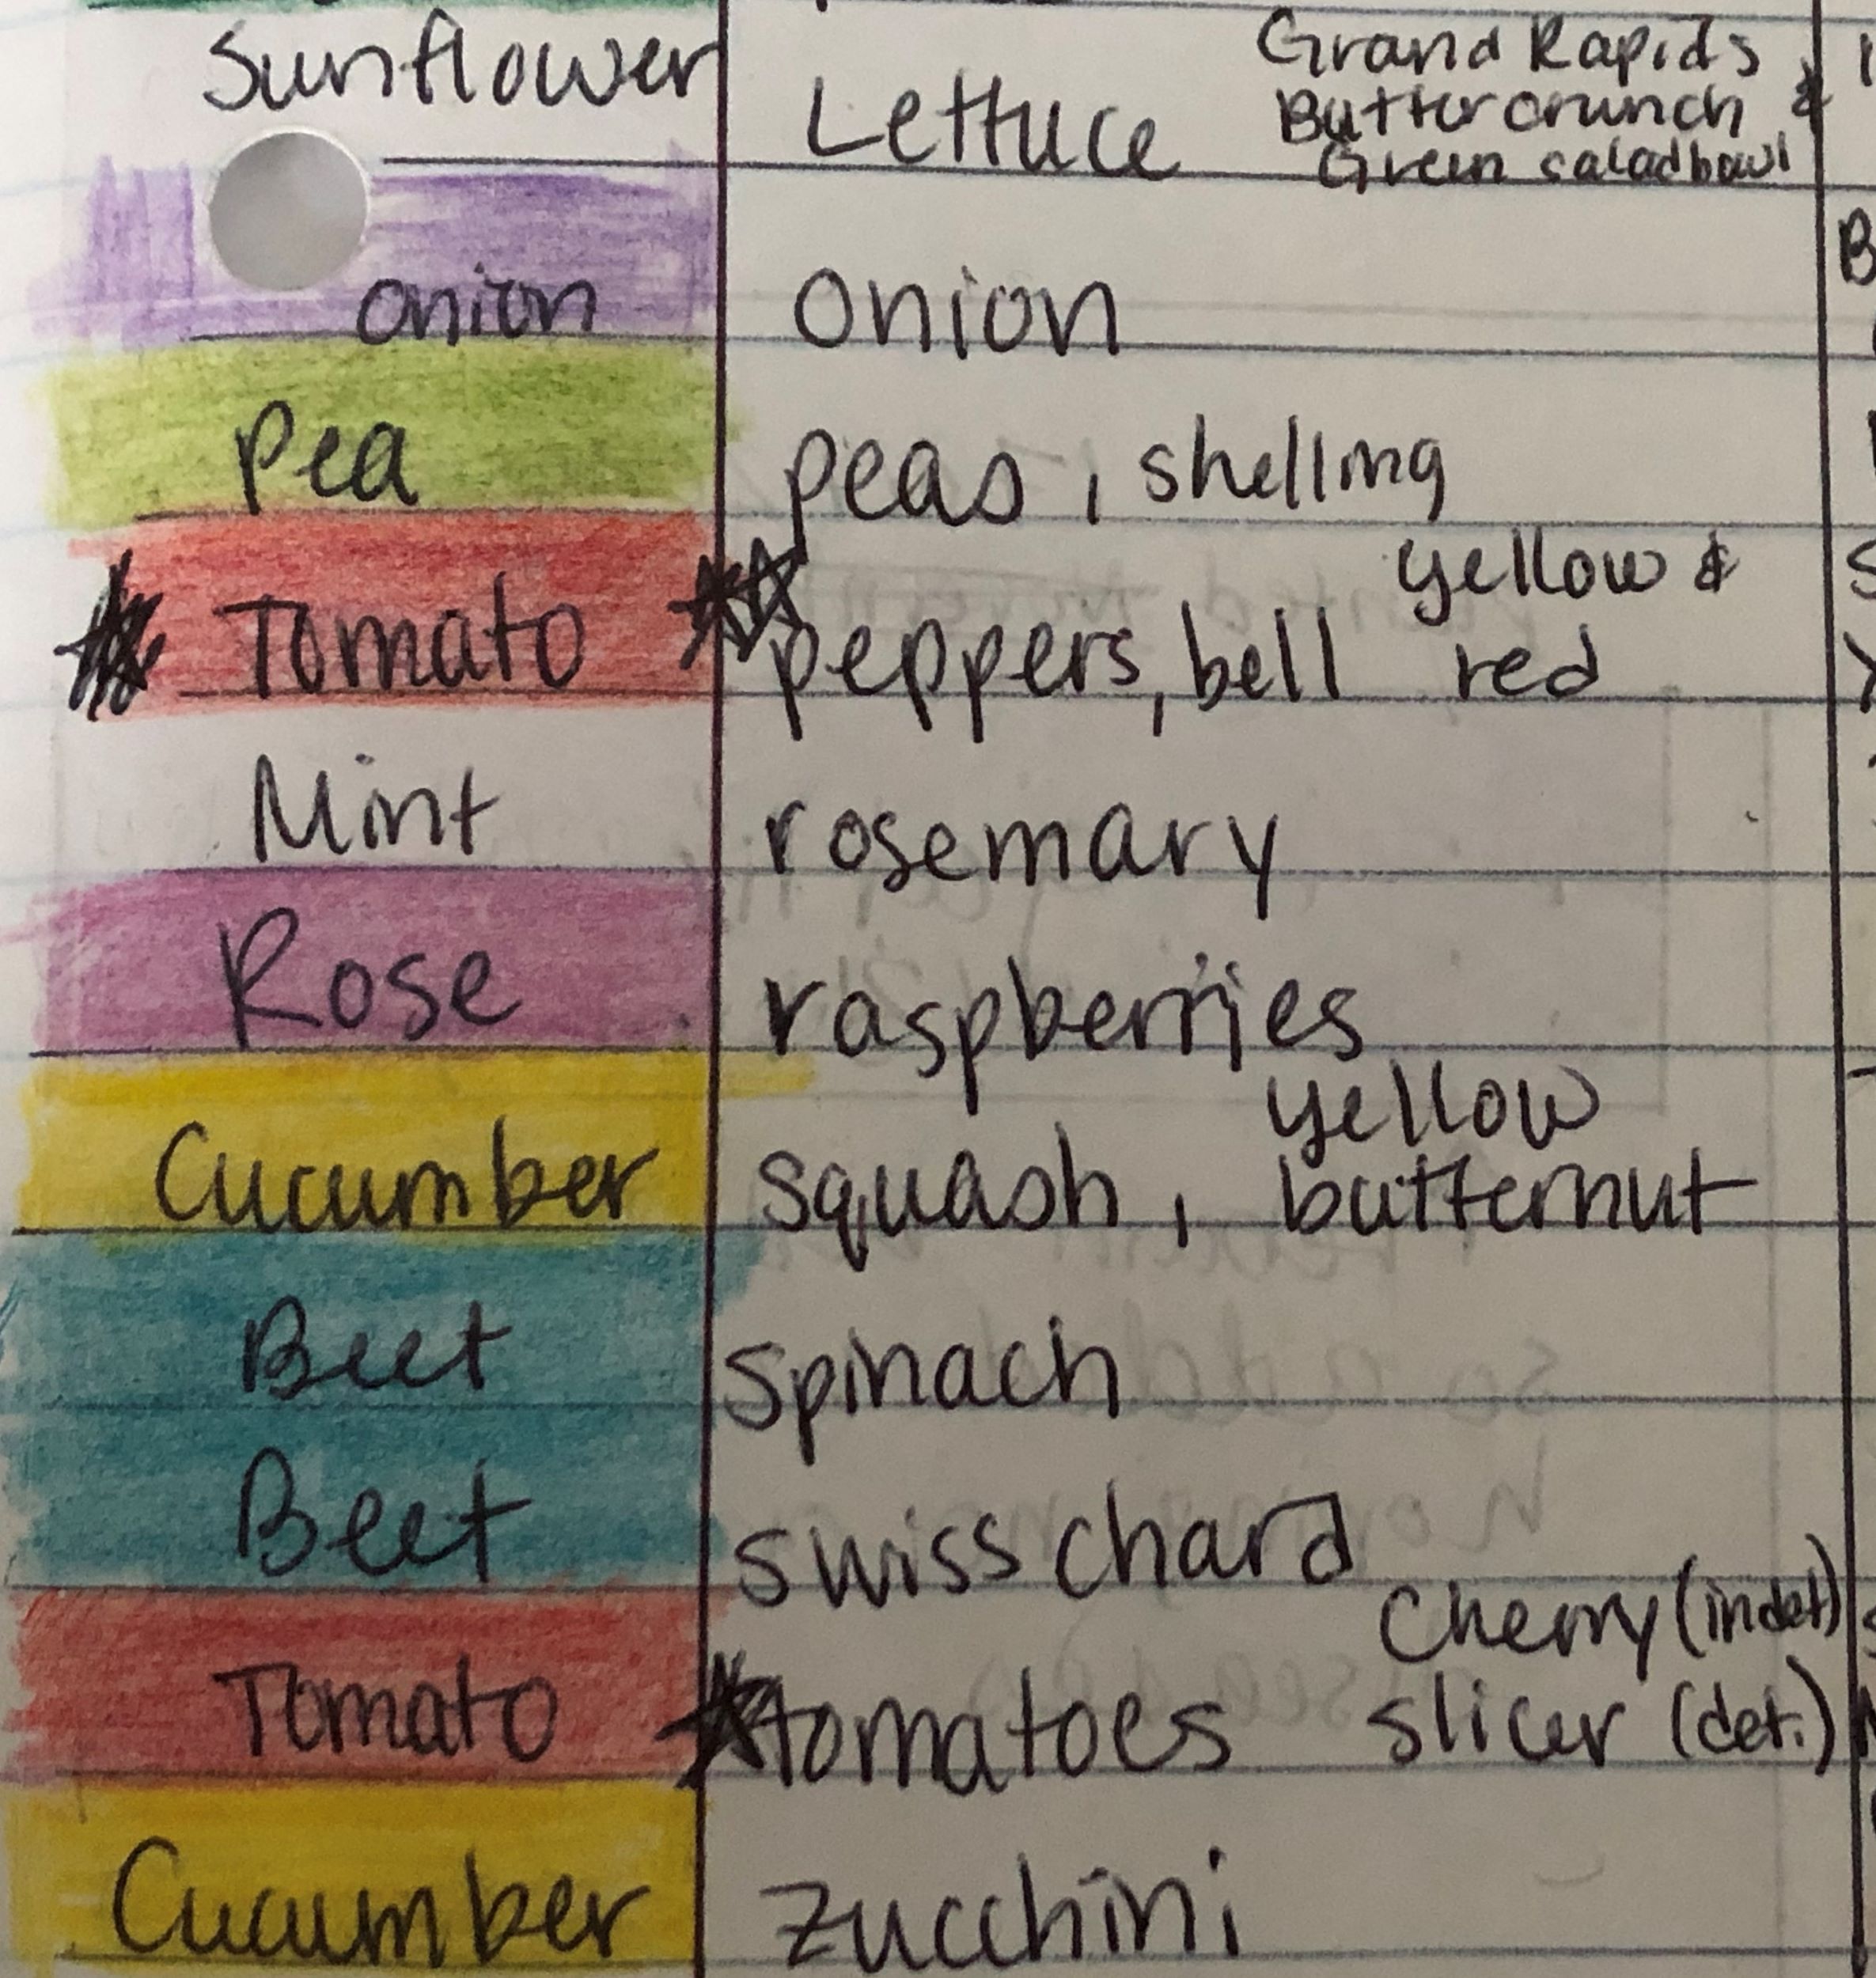 Sunflower Lettuce Grand Rapids
Buttercrunch &
Green saladbowl
onion onion
Pea peas, shelling
yellow &
Tomato peppers, bell red
Mint rosemary
Rose raspberries
yellow
Cucumber squash, butternut
Beet spinach
Beet swiss chard
Cherry (indet)
Tomato tomatoes slicer (det.)
Cucumber zucchini